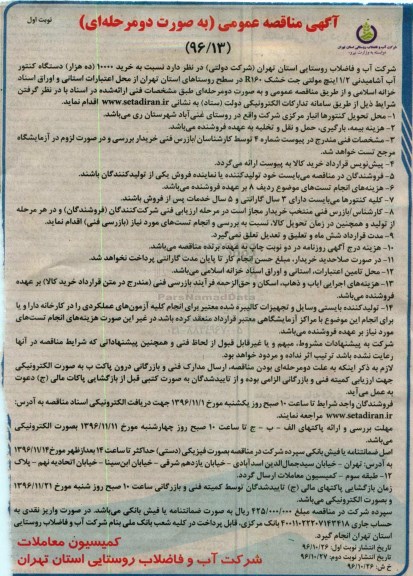 نوبت اول
آگهی مناقصه عمومی (به صورت دومرحله‌ای)
(۹۶/۱۳)
شرکت آب و فاضلاب روستایی استان تهران
شرکت آب و فاضلاب روستایی استان تهران (شرکت دولتی) در نظر دارد نسبت به خرید ۱۰۰۰۰ (ده هزار) دستگاه کنتور
آب آشامیدنی ۱/۲ اینچ مولتی جت خشک R۱۶۰ در سطح روستاهای استان تهران از محل اعتبارات استانی و اوراق اسناد
خزانه اسلامی و از طریق مناقصه عمومی و به صورت دومرحله‌ای طبق مشخصات فنی ارائه‌شده در اسناد با در نظر گرفتن
شرایط ذیل از طریق سامانه تدارکات الکترونیکی دولت (ستاد) به نشانی www.setadiran.ir اقدام نماید.
۱- محل تحویل کنتورها انبار مرکزی شرکت واقع در روستای غنی‌آباد شهرستان ری می‌باشد.
۲- هزینه بیمه، بارگیری، حمل و نقل و تخلیه به عهده فروشنده می‌باشد.
۳- مشخصات فنی مندرج در پیوست شماره ۴ توسط کارشناسان/بازرس فنی خریدار بررسی و در صورت لزوم در آزمایشگاه
مرجع تست خواهد شد.
۴- پیش‌نویس قرارداد خرید کالا به پیوست ارائه می‌گردد.
۵- فروشندگان در مناقصه می‌بایست خود تولیدکننده یا نماینده فروش یکی از تولیدکنندگان باشند.
۶- هزینه‌های انجام تست‌های موضوع ردیف ۸ بر عهده فروشنده می‌باشد.
۷- کلیه کنتورها می‌بایست دارای ۳ سال گارانتی و ۵ سال خدمات پس از فروش باشند.
۸- کارشناس/بازرس فنی منتخب خریدار مجاز است در مرحله ارزیابی فنی شرکت‌کنندگان (فروشندگان) و در هر مرحله
از تولید و همچنین در زمان تحویل کالا، نسبت به بررسی و انجام تست‌های مورد نیاز (بازرسی فنی) اقدام نماید.
۹- مدت قرارداد شش ماه و تعلیق و تعدیل تعلق نمی‌گیرد.
۱۰- هزینه درج آگهی روزنامه در دو نوبت چاپ به عهده برنده مناقصه می‌باشد.
۱۱- در صورت صلاحدید خریدار، مبلغ حسن انجام کار تا پایان مدت گارانتی پرداخت نخواهد شد.
۱۲- محل تامین اعتبارات، استانی و اوراق اسناد خزانه اسلامی می‌باشد.
۱۳- هزینه‌های اجرایی ایاب و ذهاب، اسکان و حق‌الزحمه فرآیند بازرسی فنی (مندرج در متن قرارداد خرید کالا) بر عهده
فروشنده می‌باشد.
۱۴- تولیدکننده بایستی وسایل و تجهیزات کالیبره شده معتبر برای انجام کلیه آزمون‌های عملکردی را در کارخانه دارا و یا
برای انجام این موضوع با مراکز آزمایشگاهی معتبر قرارداد منعقد کرده باشد در غیر این صورت هزینه‌های انجام تست‌های
مورد نیاز بر عهده فروشنده می‌باشد.
شرکت به پیشنهادات مشروط، مبهم و یا غیرقابل قبول از لحاظ فنی و همچنین پیشنهاداتی که شرایط مناقصه در آنها
رعایت نشده باشد ترتیب اثر نداده و مردود خواهد بود.
لازم به ذکر اینکه به علت دومرحله‌ای بودن مناقصه، ارسال مدارک فنی و بازرگانی درون پاکت ب به صورت الکترونیکی
جهت ارزیابی کمیته فنی و بازرگانی الزامی بوده و از تاییدشدگان به صورت کتبی قبل از بازگشایی پاکات مالی (ج) دعوت
به عمل می‌آید.
فروشندگان واجد شرایط تا ساعت ۱۰ صبح روز یکشنبه مورخ ۱۳۹۶/۱۱/۱ جهت دریافت الکترونیکی اسناد مناقصه به آدرس:
www.setadiran.ir مراجعه نمایند.
مهلت بررسی و ارائه پاکتهای الف - ب - ج تا ساعت ۱۰ صبح روز چهارشنبه مورخ ۱۳۹۶/۱۱/۱۱ بصورت الکترونیکی
می‌باشد.
اصل ضمانتنامه یا فیش بانکی سپرده شرکت در مناقصه بصورت فیزیکی (دستی) حداکثر تا ساعت ۱۴ بعدازظهر مورخ ۱۳۹۶/۱۱/۱۴
به آدرس: تهران - خیابان سیدجمال‌الدین اسدآبادی - خیابان یازدهم شرقی - خیابان ابن‌سینا - خیابان اتحادیه نهم - پلاک
۱۲- طبقه سوم - کمیسیون معاملات ارسال گردد.
زمان بازگشایی پاکتهای مالی (ج) تاییدشدگان توسط کمیته فنی و بازرگانی ساعت ۱۰ صبح روز شنبه مورخ ۱۳۹۶/۱۱/۲۱
و بصورت الکترونیکی می‌باشد.
سپرده شرکت در مناقصه مبلغ ۴۲۵/۰۰۰/۰۰۰ ریال به صورت ضمانتنامه یا فیش بانکی می‌باشد. در صورت واریز نقدی به
حساب جاری ۴۰۰۱۱۰۲۲۰۷۱۴۳۴۱۸ بانک مرکزی، قابل پرداخت در کلیه شعب بانک ملی بنام شرکت آب و فاضلاب روستایی
استان تهران انجام گیرد.
تاریخ انتشار نوبت اول: ۹۶/۱۰/۲۶
تاریخ انتشار نوبت دوم: ۹۶/۱۰/۲۷
خ ش: ۹۶/۱۰/۲۶
کمیسیون معاملات
شرکت آب و فاضلاب روستایی استان تهران